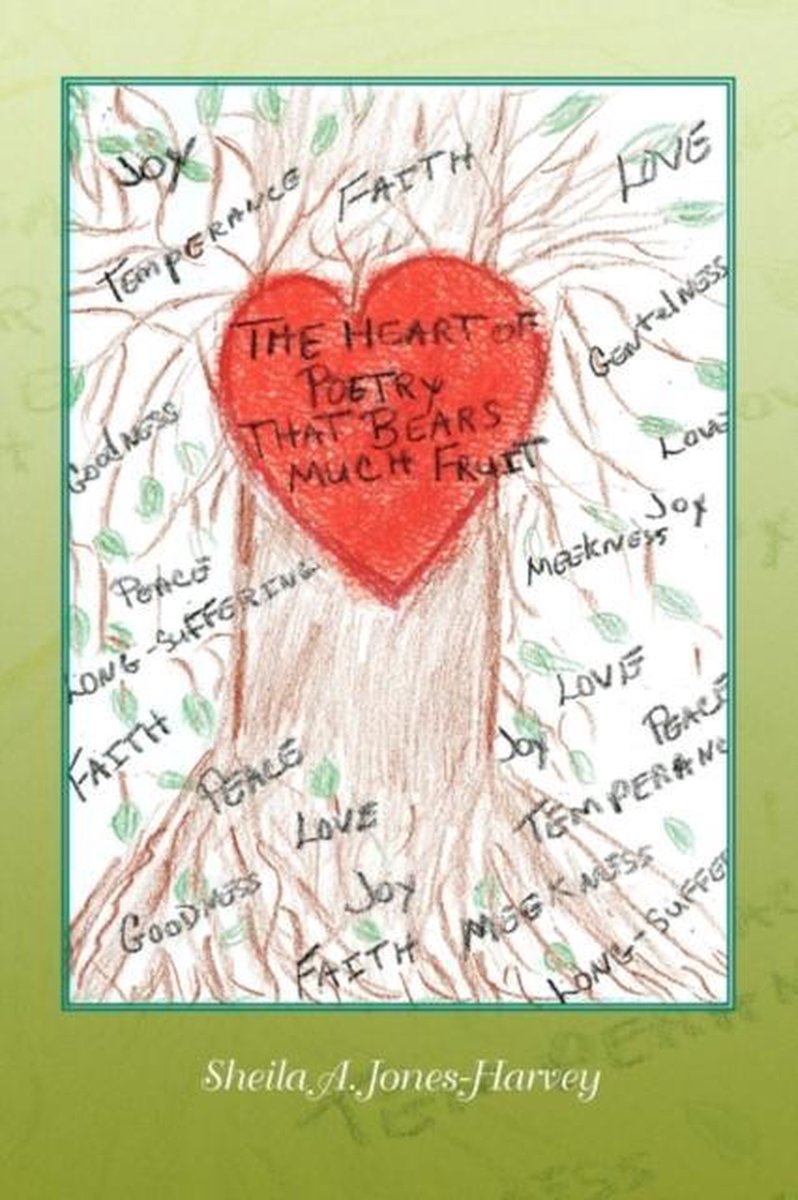 JOY
TEMPERANCE
FAITH
LOVE
THE HEART OF
POETRY
THAT BEARS
MUCH FRUIT
GENTELNESS
GOODNESS
LOVE
JOY
MEEKNESS
PEACE
LONG-SUFFERING
LOVE
PEACE
FAITH
JOY
PEACE
TEMPERANC
LOVE
GOODNESS
JOY
MEEKNESS
FAITH
LONG-SUFFE
Sheila A. Jones-Harvey